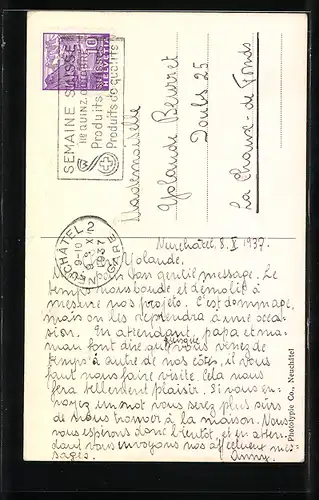 SEMAINE SUISSE
IIe QUINZ. D'OCTOBRE
Produits suisses
Produits de qualité
10
HELVETIA
Mademoiselle
Yolande Beurret
Doubs 25
La Chaux-de-Fonds
NEUCHÂTEL 2
9-10
X
1937
GARE
Neuchâtel, 8. X 1937.
Yolande.
gentil message. Le
temps nous boude et démolit à
mesure nos projets. C'est dommage,
mais on les reprendra à une occa-
sion. En attendant, papa et ma-
man font dire que puisque vous venez de
temps à autre de nos côtés, il vous
faut nous faire visite. Cela nous
fera tellement plaisir. Si vous en-
voyez un mot vous serez plus sûrs
de nous trouver à la maison. Nous
nous espérons donc bientôt, et en atten-
dant vous envoyons nos affectueux mes-
sages.
Phototypie Co., Neuchâtel